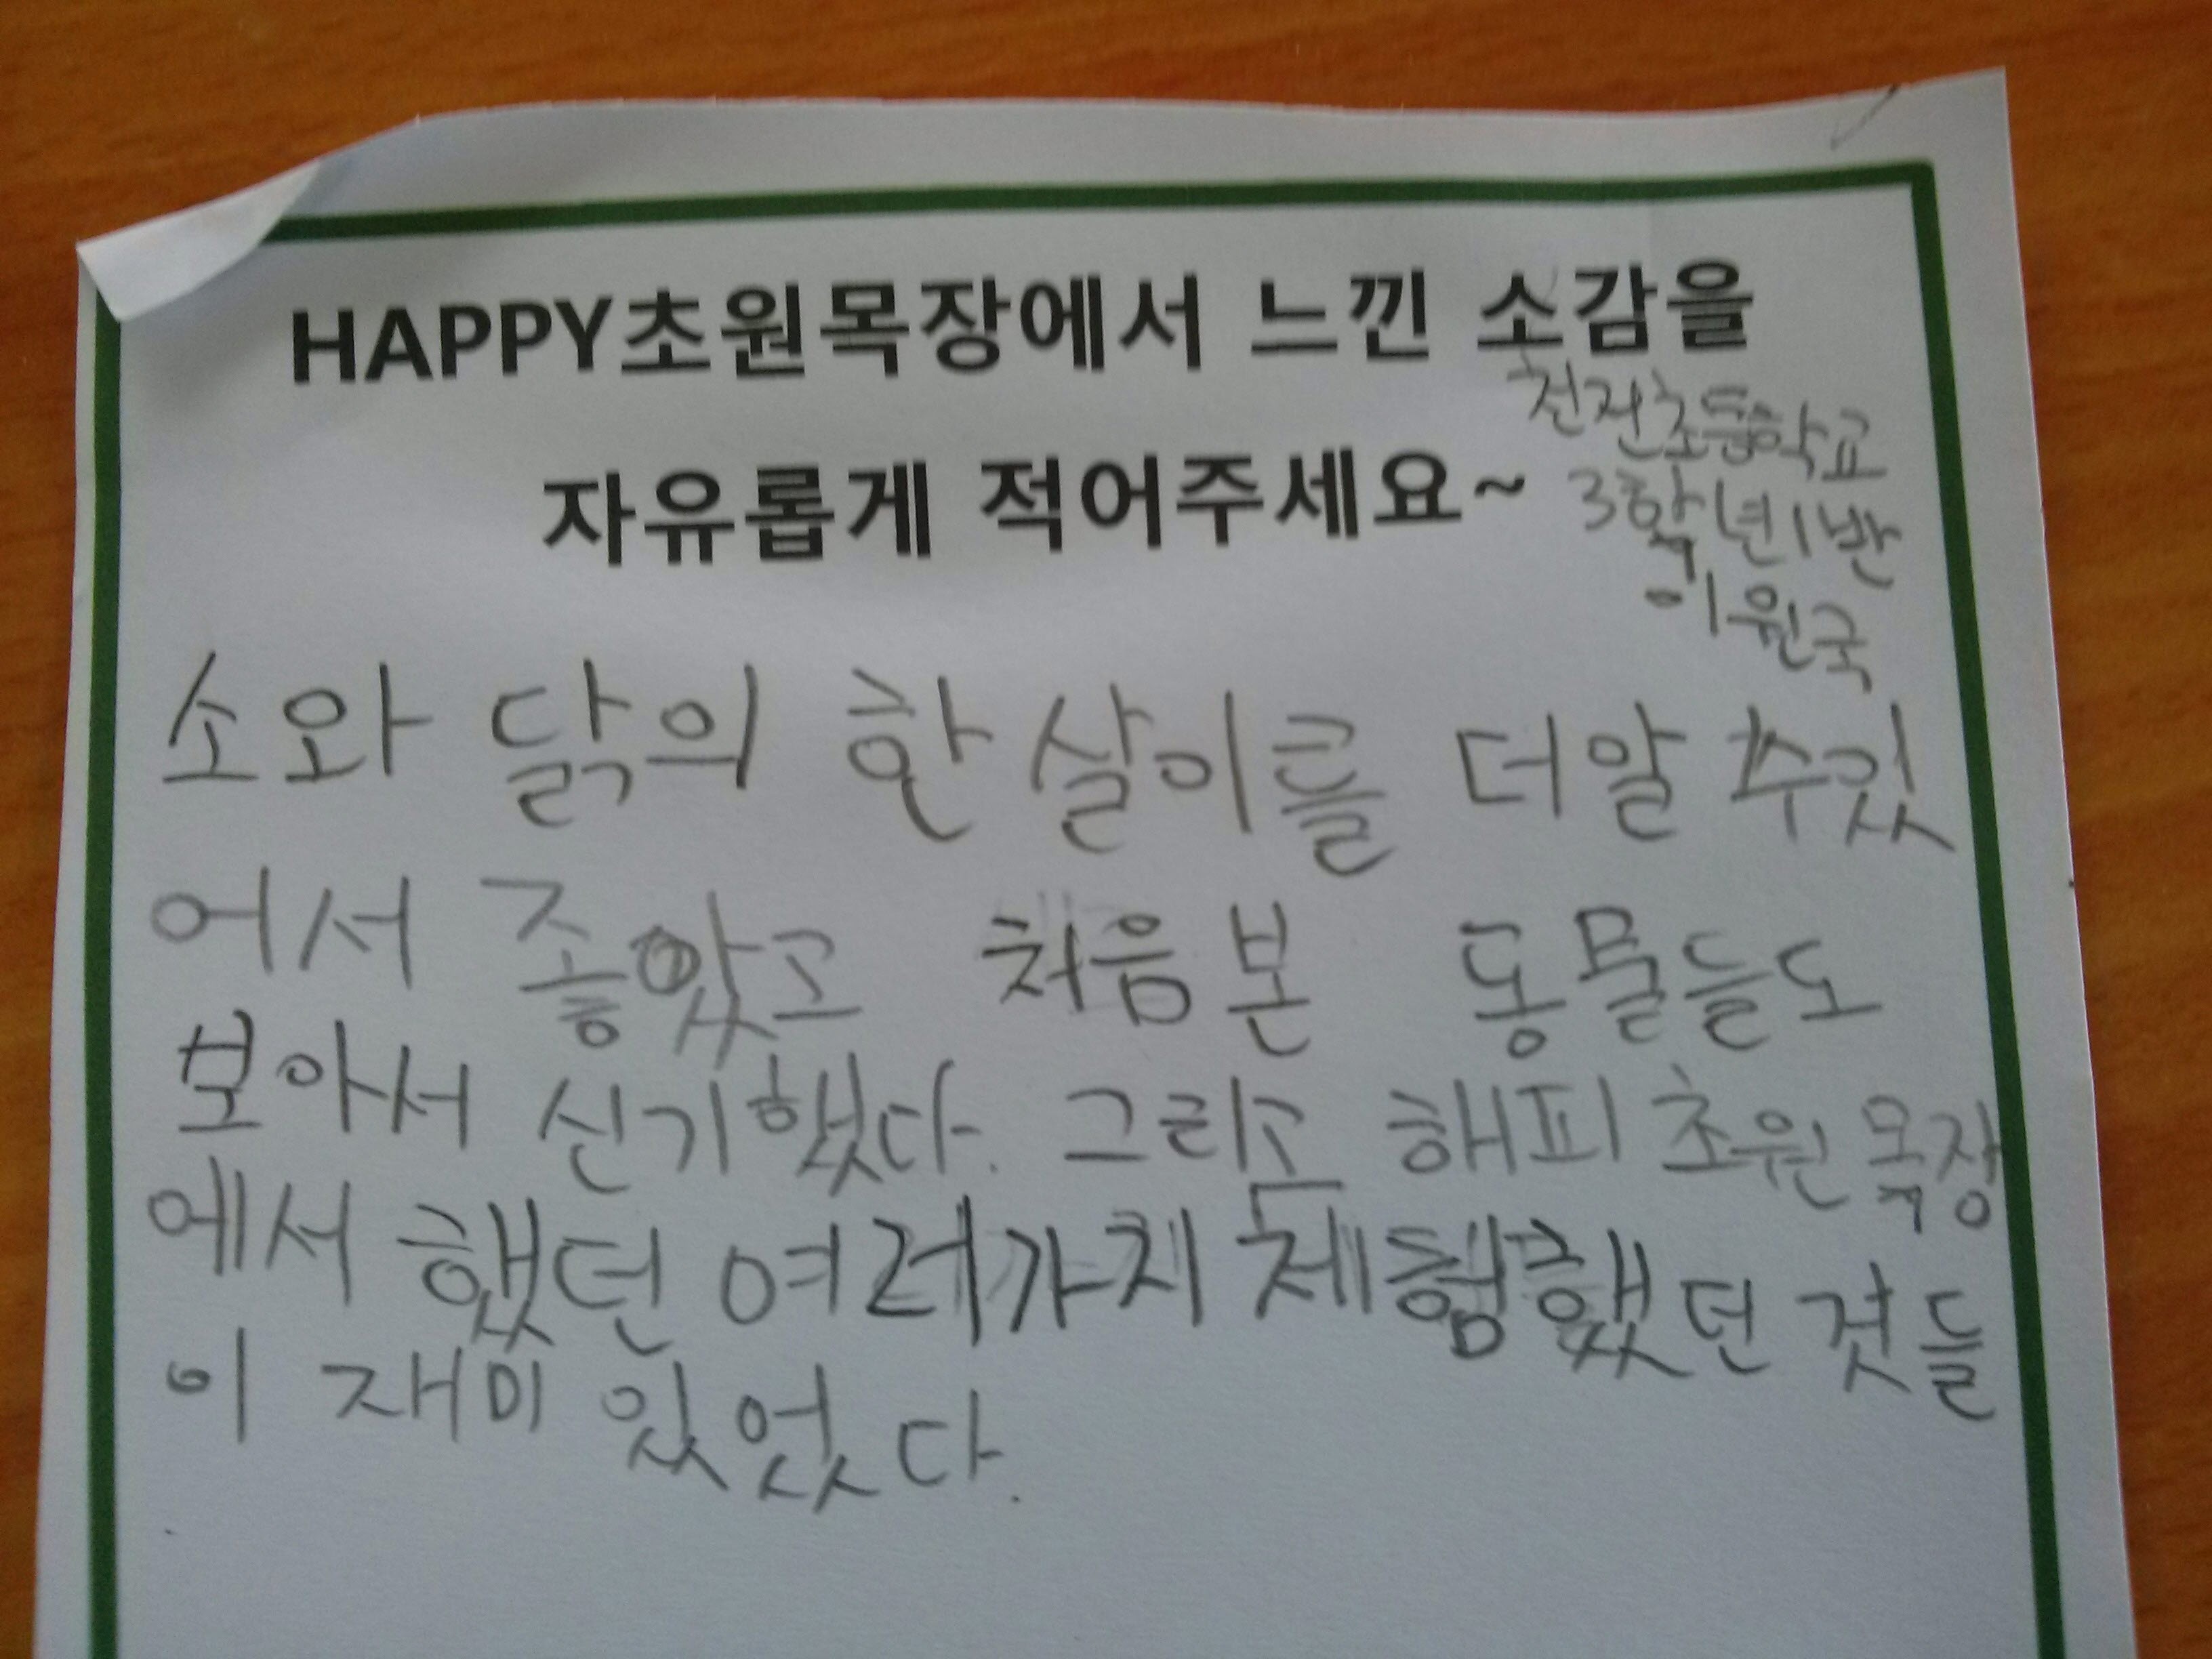 HAPPY초원목장에서 느낀 소감을
자유롭게 적어주세요~
천전초등학교
3학년1반
이원국
소와 닭의 한 살이를 더알 수있
어서 좋았고 처음 본 동물들도
보아서 신기했다. 그리고 해피초원목장
에서 했던 여러가치 체험했던 것들
이 재미 있었다.